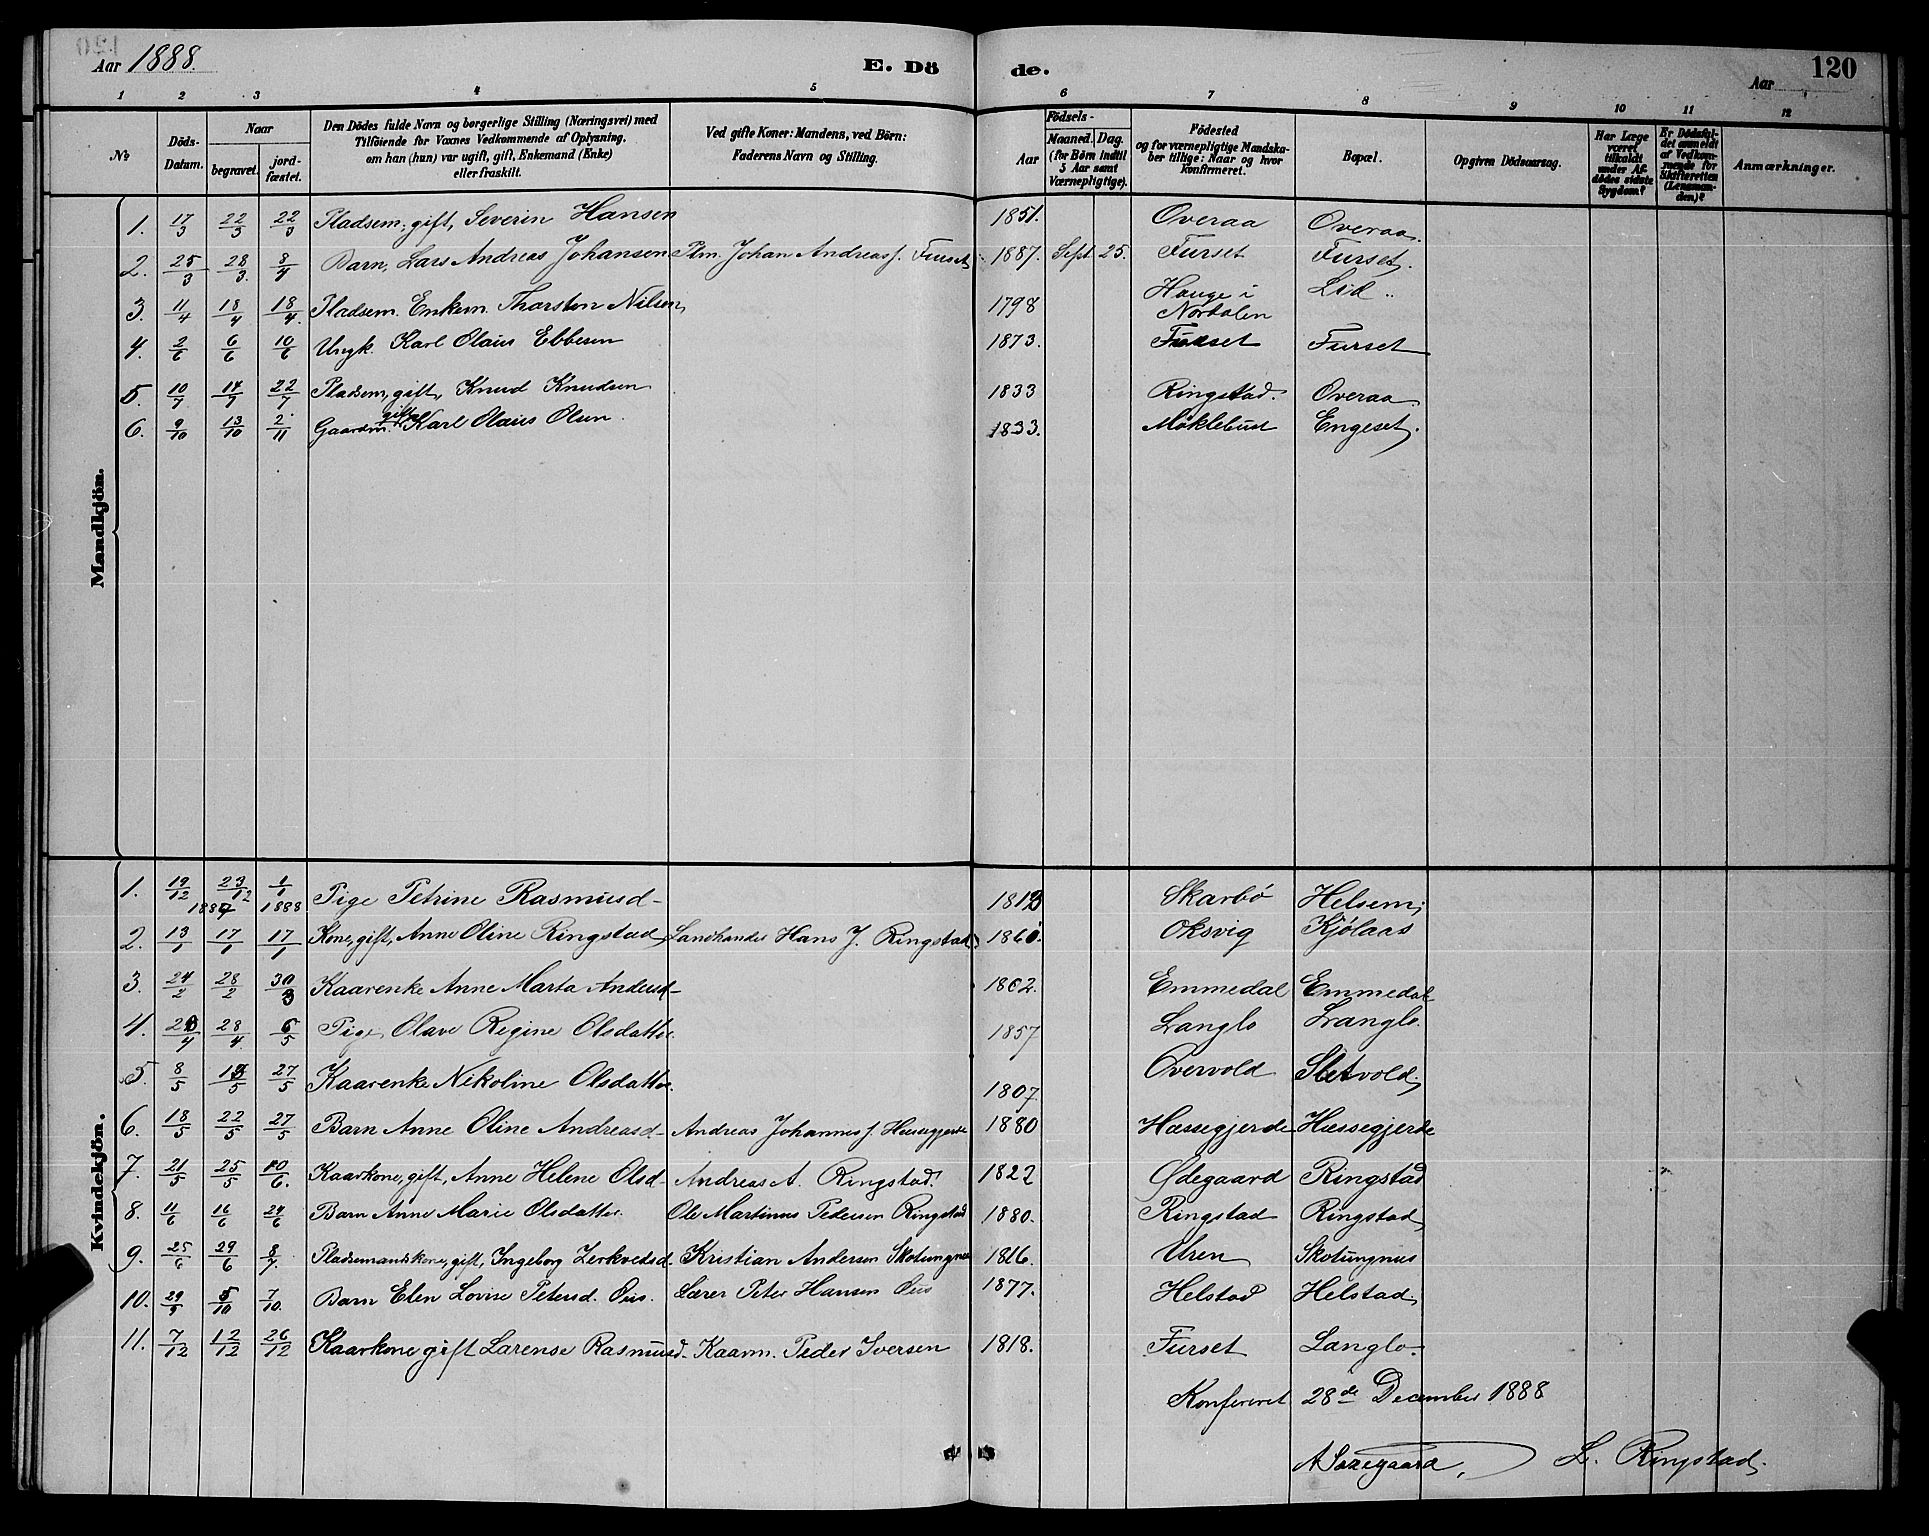 Aar 1888.
E. Dö de.
Aar
120
1 2 3 4 5 6 7 8 9 10 11 12
No
Döds-Datum.
Naar
begravet. jord-fæstet.
Den Dödes fulde Navn og borgerlige Stilling (Næringsvei) med
Tilföiende for Voxnes Vedkommende af Oplysning,
om han (hun) var ugift, gift, Enkemand (Enke)
eller fraskilt.
Ved gifte Koner: Mandens, ved Börn:
Faderens Navn og Stilling.
Födsels-
Aar
Maaned. Dag.
(for Börn indtil
5 Aar samt
Værnepligtige).
Födested
og for værnepligtige Mandska-
ber tillige: Naar og hvor
konfirmeret.
Bopæl.
Opgiven Dödsaarsag.
Har Læge
været
tilkaldt
under Af-
dødes sidste
Sygdom?
Er Dödsfal-
det anmeldt
af Vedkom-
mende for
Skifteretten
(Lensman-
den)?
Anmærkninger.
Mandkjön.
1. 17/3 22/3 22/3 Pladsem, gift, Severin Hansen 1851. Overaa Overaa.
2. 25/3 28/3. 8/4 Barn, Lars Andreas Johansen Plm. Johan Andreas J. Furset 1887. Sept. 25. Furset Furset.
3. 11/4 18/4 18/4. Pladsem. Enkem. Thorsten Nilsen, 1798 Hauge i Nordalen Lid..
4. 2/6 6/6 10/6 Ungk. Karl Olaus Ebbesen 1873. Furset Furset
5. 10/7 14/7 22/7 Pladsem, gift, Knud Knudsen 1833 Ringstad. Overaa.
6. 9/10 13/10 2/11 Gaardm. gift Karl Olaus Olsen. 1833. Møklebust Engeset.
Kvindekjön.
1. 19/12 23/12 1887 1/1 1888 Pige Petrine Rasmusd- 1813 Skarbö Helsem;
2. 13/1 17/1 17/1 Kone, gift, Anne Oline Ringstad, Landhandler Hans J. Ringstad. 1860. Oksvig Kjölaas
3. 24/2 28/2 30/3 Kaarenke Anne Marta Andersd- 1802. Emmedal Emmedal
4. 20/4 28/4. 6/5 Pige, Olave Regine Olsdatter. 1857 Langlo Langlo.
5. 8/5 13/5 27/5 Kaarenke Nikoline Olsdatter. 1807. Overvold Sletvold,
6. 18/5 22/5 27/5 Barn Anne Oline Andreasd- Andreas Johannes J. Hæssegjerde 1880 Hæssegjerde Hæssegjerde
7. 21/5 25/5 10/6. Kaarkone, gift, Anne Helene Olsd- Andreas A. Ringstad. 1822 Ødegaard Ringstad
8. 11/6 16/6 24/6 Barn Anne Marie Olsdatter. Ole Martinus Pedersen Ringstad 1880. Ringstad Ringstad,
9. 25/6 29/6 8/7. Pladsemandskone, gift, Ingeborg Zerkvedsd. Kristian Andersen Skotungnes 1816. Uren Skotungnes
10. 29/9 5/10 7/10. Barn Elen Lovise Petersd. Øus. Lærer Peter Hansen Øus 1877. Helstad Helstad,
11. 7/12 12/12 26/12 Kaarkone gift Larense Rasmusd. Kaarm. Peder Iversen 1818. Furset Langlo.
Konfereret 28de December 1888
A Saxegaard, L. Ringstad,